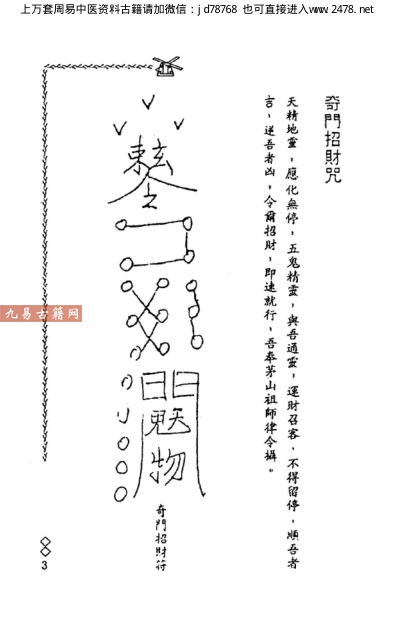 上万套周易中医资料古籍请加微信：jd78768 也可直接进入www.2478.net
奇門招財咒
天精地靈，應化無停，五鬼精靈，與吾通靈，運財召客，不得留停，順吾者
言，逆吾者凶，令爾招財，即速就行，吾奉茅山祖師律令攝。
奇門招財符
九易古籍网
3